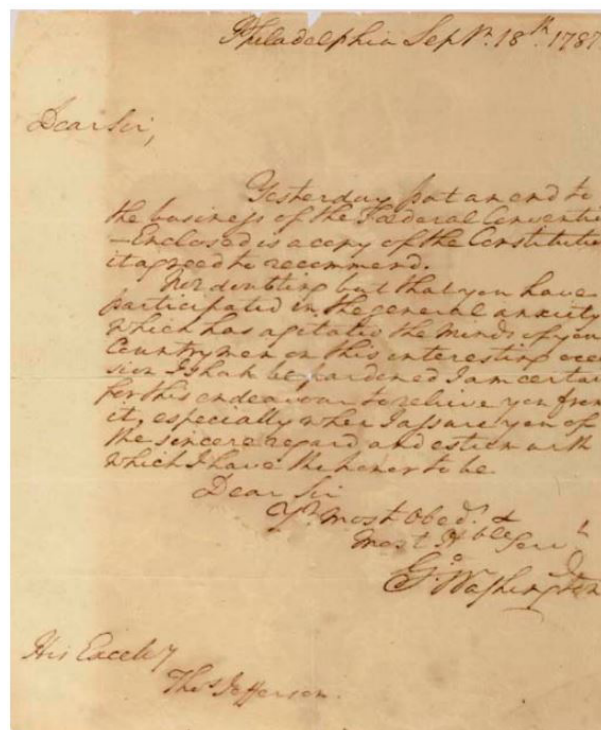 Philadelphia Sepr. 18th. 1787.
Dear Sir,
Yesterday put an end to
the business of the Fœderal Conventi
—Enclosed is a copy of the Constitutio
it agreed to recommend.
Not doubting but that you have
participated in the general anxiety
which has agitated the minds of your
Countrymen on this interesting occa
sion I shall be pardoned I am certai
for this endeavour to relieve you from
it, especially when I assure you of
the sincere regard and esteem with
which I have the honor to be
Dear Sir
Yr. most Obedt. &
most Hble Servt
Go. Washington
His Excely
Thos. Jefferson.